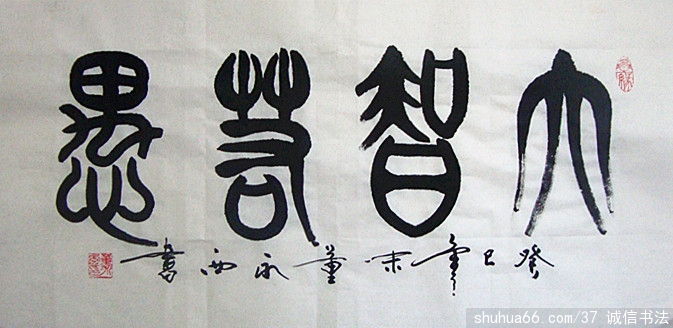 大智若愚
癸巳年末董永西書
shuhua66.com/37 诚信书法